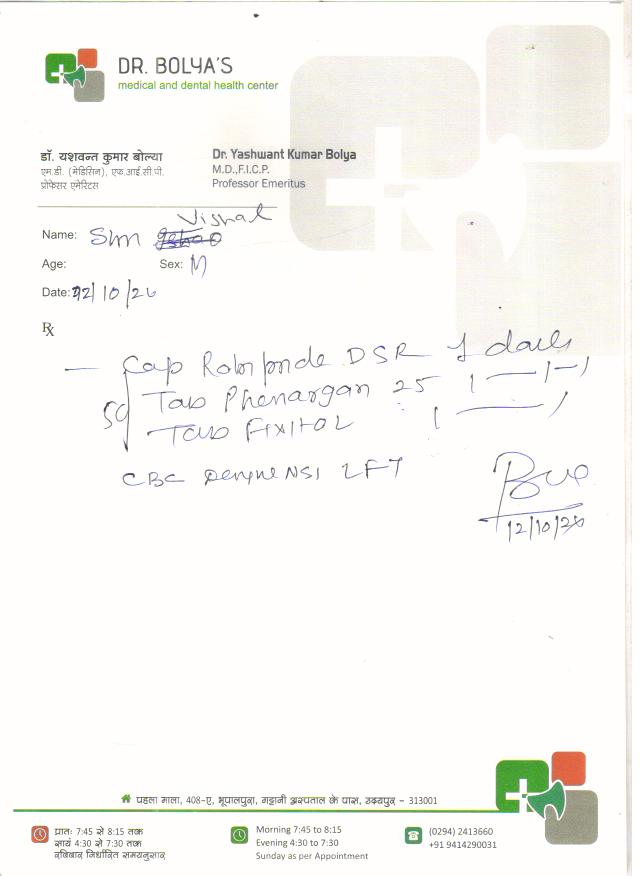 DR. BOLYA'S
medical and dental health center
डॉ. यशवन्त कुमार बोल्या
एम.डी. (मेडिसिन), एफ.आई.सी.पी.
प्रोफेसर एमेरिटस
Dr. Yashwant Kumar Bolya
M.D.,F.I.C.P.
Professor Emeritus
Vishal
Name: Shri
Age: Sex: M
Date: 12/10/26
Rx
Cap DSR 1 daily
Tab Phenargan 25 1—1—1
Tab Fixitol 1—1
CBC Dengue NS1 LFT
12/10/26
पहला माला, 408-ए, भूपालपुरा, गट्टानी अस्पताल के पास, उदयपुर - 313001
प्रातः 7:45 से 8:15 तक
सायं 4:30 से 7:30 तक
रविवार निर्धारित समयनुसार
Morning 7:45 to 8:15
Evening 4:30 to 7:30
Sunday as per Appointment
(0294) 2413660
+91 9414290031